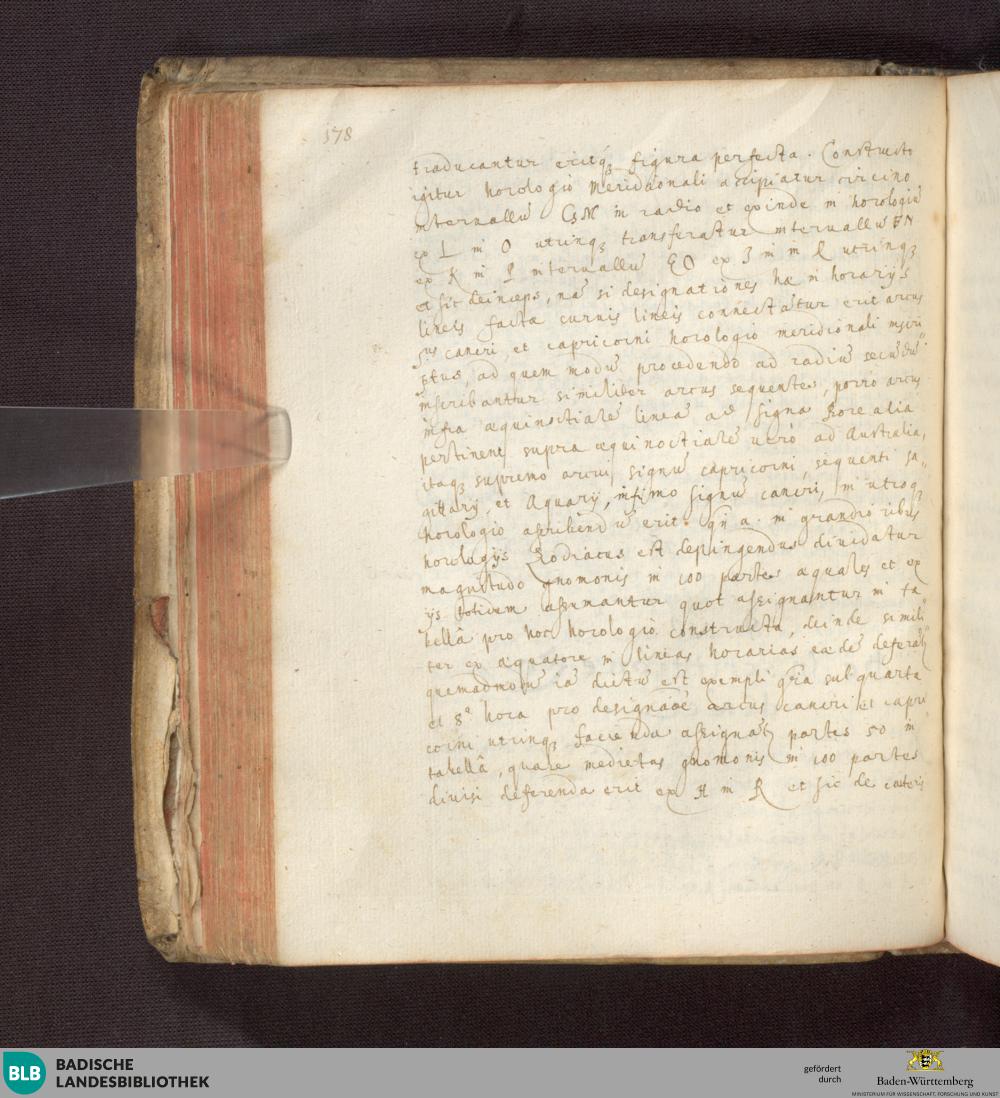 178
traducantur eritq₃ figura perfecta. Constructo
igitur horologio meridionali accipiatur circino
intervallũ GM in radio et exinde in horologiũ
ex L in O utrinq₃ transferatur intervallũ FN
ex K in P intervallũ EO ex I in R utrinq₃
et sic deinceps, nã si designationes hæ in horarijs
lineis facta curuis lineis connectãtur erit arcus
cancri et capricorni horologio meridionali inscri
ptus, ad quem modũ procedendo ad radiũ secũdũ
inscribantur similiter arcus sequentes, porro arcus
infra æquinoctialẽ lineã ad signa Borealia
pertinent supra æquinoctialẽ uero ad Australia,
itaq₃ supremo arcui signũ capricorni, sequenti sa
gittarij et Aquarij, infimo signũ cancri, in utroq₃
horologio ascribendũ erit. qñ a. in grandioribus
horologijs Zodiacus est depingendus diuidatur
magnitudo gnomonis in 100 partes æquales et ex
ijs totidem assumantur quot assignantur in ta
bellâ pro hoc horologio constructa, deinde simili
ter ex æquatore in lineas horarias eædẽ deferãt
quemadmodũ iã dictũ est exempli grã sub quarta
et 8ª hora pro designãoẽ arcus cancri et capri
corni utrinq₃ facienda assignãt partes 50 in
tabellâ, quare medietas gnomonis in 100 partes
diuisi deferenda erit ex H in R et sic de cæteris
BLB
BADISCHE
LANDESBIBLIOTHEK
gefördert
durch
Baden-Württemberg
MINISTERIUM FÜR WISSENSCHAFT, FORSCHUNG UND KUNST